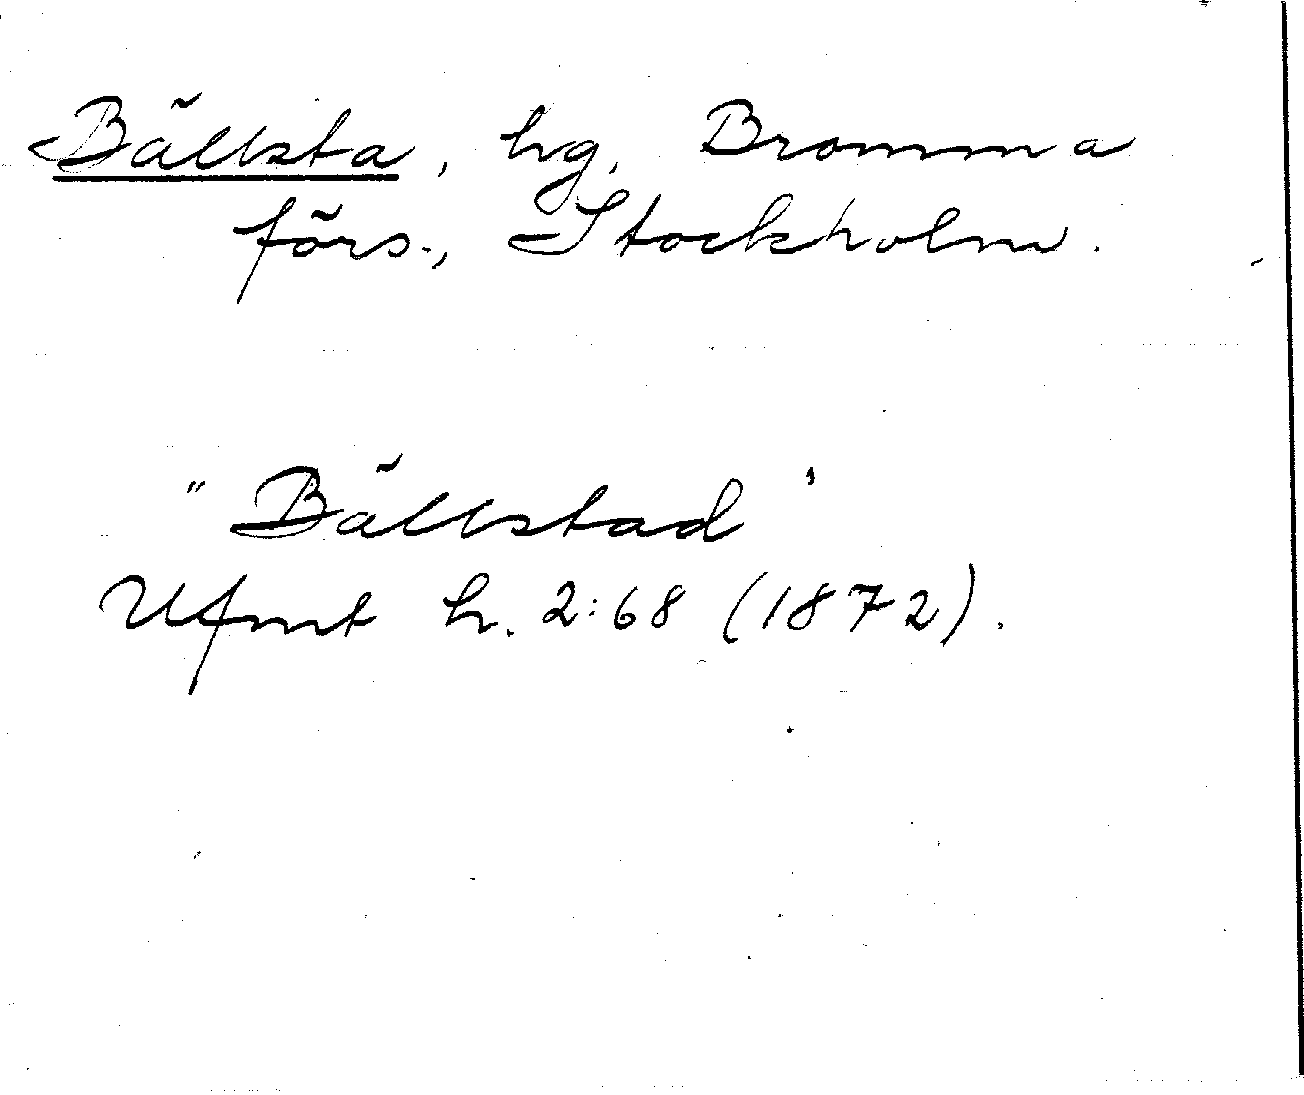 Bällsta, hg, Bromma
förs., Stockholm.
"Bällstad"
Ufmt h. 2:68 (1872).